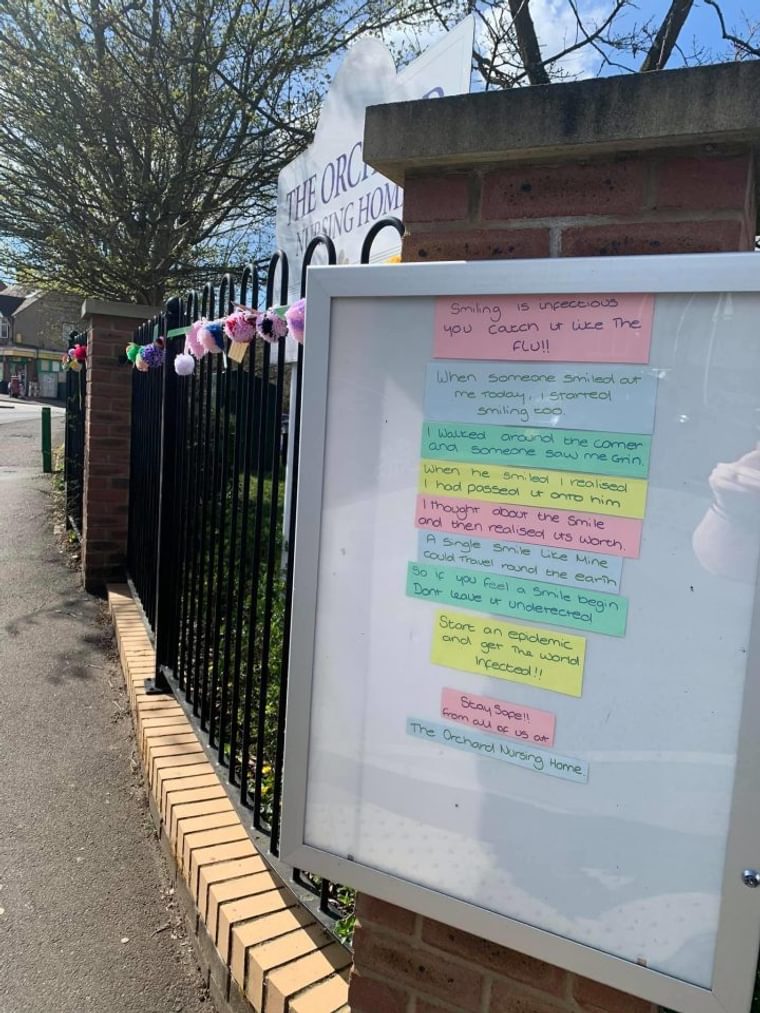 THE ORC
NURSING HOM
Smiling is infectious
you catch it like The
FLU!!
When someone smiled at
me Today, I started
smiling too.
I walked around the corner
and someone saw me Grin.
When he smiled I realised
I had passed it onto him
I thought about the Smile
and then realised its Worth.
A Single Smile Like Mine
could Travel round the earth
So if you feel a Smile begin
Dont leave it undetected
Start an epidemic
and get The World
Infected!!
Stay Safe!!
from all of us at
The Orchard Nursing Home.